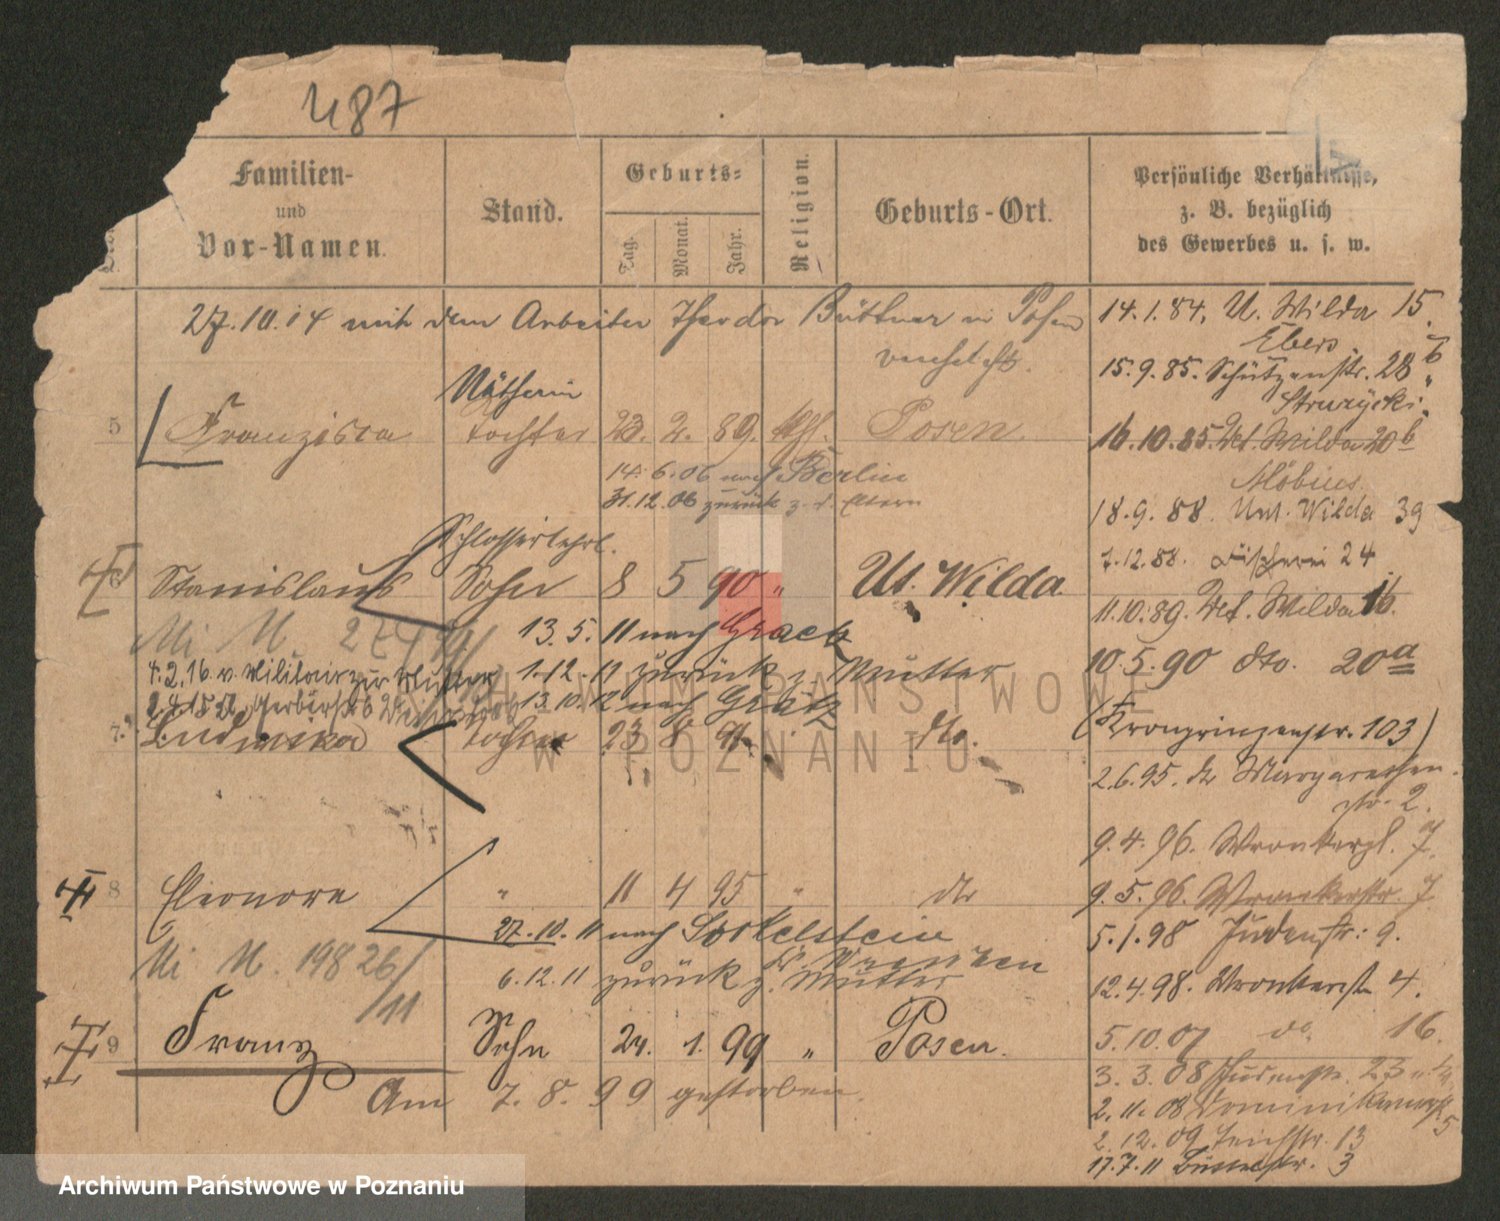 487
Familien- und Vor-Namen.
Stand.
Geburts-
Tag.
Monat.
Jahr.
Religion.
Geburts-Ort.
Persönliche Verhältnisse,
z. B. bezüglich
des Gewerbes u. s. w.
27.10.14 mit dem Arbeiter Theodor Büttner in Posen
verehelicht.
Näherin
5 Franziska Tochter 23. 2. 89. kath. Posen.
14.6.06 nach Berlin
31.12.06 zurück z. d. Eltern
Schlosserlehrl.
6 Stanislaus Sohn 8 5 90 " Ut. Wilda
13.5.11 nach Graetz
4.2.16 v. Militair zur Mutter
1.12.11 zurück z. Mutter
13.10.12 nach Grätz
7. Ludwika Tochter 23 8 91. dto.
8 Eleonore " 11 4 95 " dto
27.10.11 nach
Mi N. 19826/11
6.12.11 zurück z. Mutter
9 Franz Sohn 24. 1. 99 " Posen.
Am 7.8.99 gestorben.
14.1.84. U. Wilda 15.
Ebers.
15.9.85. Schützenstr. 28b
16.10.85. Wilda 20b
Möbius
18.9.88. Unt. Wilda 39
7.12.88. Fischerei 24
11.10.89. Wilda 16.
10.5.90 dto. 20a
(Kronprinzenstr. 103)
2.6.95. Margarethen
str. 2.
9.4.96. Wronkerpl. 7.
9.5.96. Wronkerstr. 7
5.1.98 Judenstr: 9.
12.4.98. Wronkerstr 4.
5.10.07 do. 16.
3.3.08 Judenstr. 23
2.11.08 5
2.12.09 Teichstr. 13
17.7.11 3
ARCHIWUM PAŃSTWOWE
W POZNANIU
Archiwum Państwowe w Poznaniu